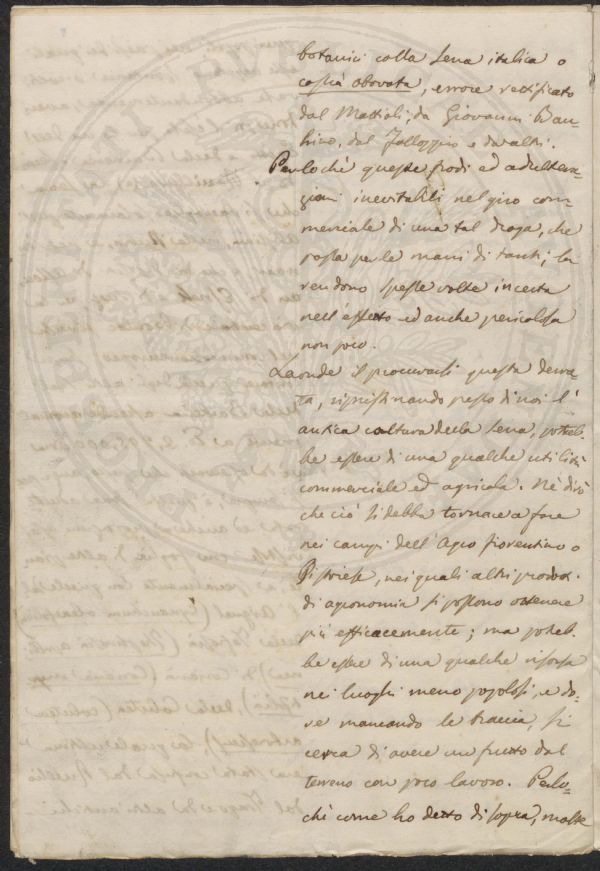 botanici colla Sena italica o
cassia obovata, errore rettificato
dal Mattioli, da Giovanni Bau-
hino, dal Falloppio e da altri.
Perlochè queste frodi ed adultera-
zioni inevitabili nel giro com-
merciale di una tal droga, che
passa per le mani di tanti; la
rendono spesse volte incerta
nell'effetto ed anche pericolosa
non poco.
Laonde il procurarsi questa derra-
ta, ripristinando presso di noi l'
antica coltura della Sena, potreb-
be essere di una qualche utilità
commerciale ed agricola. Nè dirò
che ciò si debba tornare a fare
nei campi dell'Agro fiorentino o
Pistoiese, nei quali altri prodot-
di agronomia si possono ottenere
più efficacemente; ma potreb-
be essere di una qualche risorsa
nei luoghi meno popolosi, e do-
ve mancando le braccia, si
cerca di avere un frutto dal
terreno con poco lavoro. Perlo-
chè come ho detto di sopra, molte